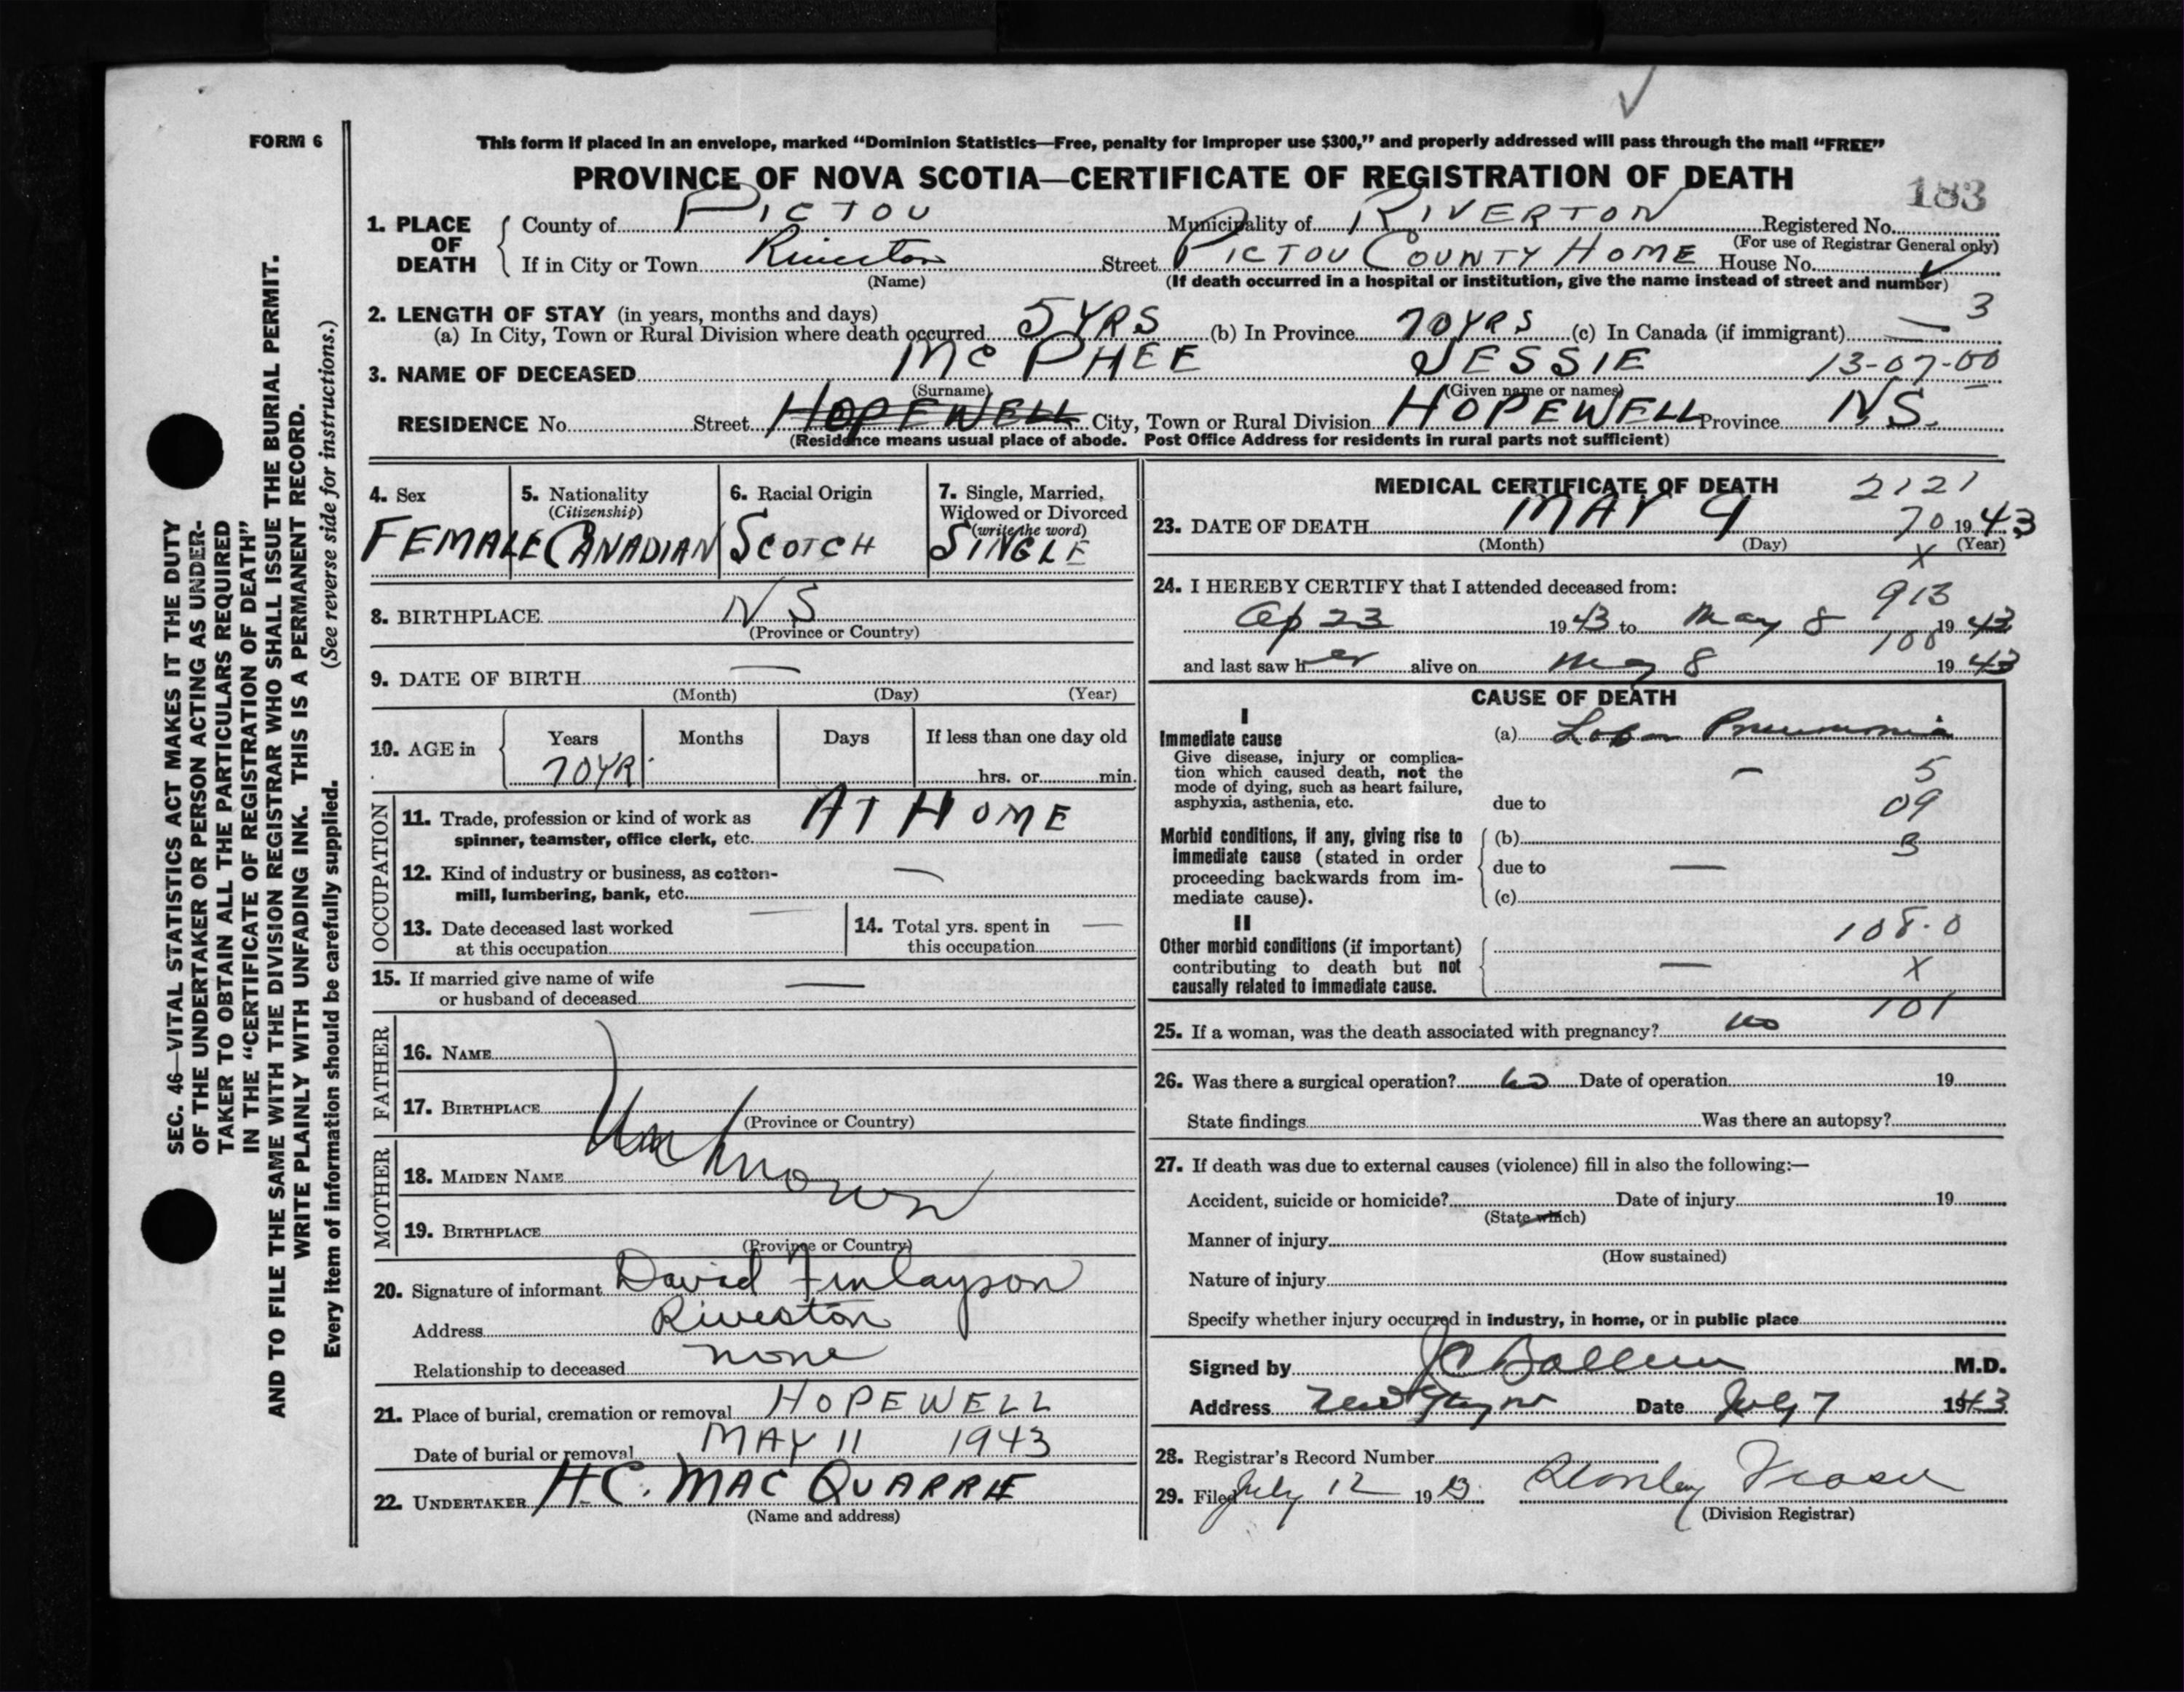 FORM 6
This form if placed in an envelope, marked "Dominion Statistics—Free, penalty for improper use $300," and properly addressed will pass through the mail "FREE"
PROVINCE OF NOVA SCOTIA—CERTIFICATE OF REGISTRATION OF DEATH
183
1. PLACE OF DEATH County of PICTOU Municipality of RIVERTON Registered No.
(For use of Registrar General only)
If in City or Town Riverton Street PICTOU COUNTY HOME House No.
(Name) (If death occurred in a hospital or institution, give the name instead of street and number)
2. LENGTH OF STAY (in years, months and days) 3
(a) In City, Town or Rural Division where death occurred 5 YRS (b) In Province 70 YRS (c) In Canada (if immigrant) —
3. NAME OF DECEASED MC PHEE JESSIE 13-07-00
(Surname) (Given name or names)
RESIDENCE No. Street HOPEWELL City, Town or Rural Division HOPEWELL Province N.S.
(Residence means usual place of abode. Post Office Address for residents in rural parts not sufficient)
4. Sex FEMALE
5. Nationality (Citizenship) CANADIAN
6. Racial Origin SCOTCH
7. Single, Married, Widowed or Divorced (write the word) SINGLE
8. BIRTHPLACE N S
(Province or Country)
9. DATE OF BIRTH —
(Month) (Day) (Year)
10. AGE in Years Months Days If less than one day old
70 YR hrs. or min.
OCCUPATION
11. Trade, profession or kind of work as spinner, teamster, office clerk, etc. AT HOME
12. Kind of industry or business, as cotton-mill, lumbering, bank, etc. —
13. Date deceased last worked at this occupation —
14. Total yrs. spent in this occupation —
15. If married give name of wife or husband of deceased —
FATHER
16. NAME
17. BIRTHPLACE
(Province or Country)
Unknown
MOTHER
18. MAIDEN NAME
19. BIRTHPLACE
(Province or Country)
20. Signature of informant David Finlayson
Address Riverton
Relationship to deceased none
21. Place of burial, cremation or removal HOPEWELL
Date of burial or removal MAY 11 1943
22. UNDERTAKER H.C. MAC QUARRIE
(Name and address)
MEDICAL CERTIFICATE OF DEATH 2121
23. DATE OF DEATH MAY 9 70 1943
(Month) (Day) (Year)
X
24. I HEREBY CERTIFY that I attended deceased from:
913
Ap 23 1943 to May 8 1943
100
and last saw her alive on May 8 1943
CAUSE OF DEATH
I
Immediate cause (a) Lobar Pneumonia
Give disease, injury or complication which caused death, not the mode of dying, such as heart failure, asphyxia, asthenia, etc.
— 5
due to 09
Morbid conditions, if any, giving rise to immediate cause (stated in order proceeding backwards from immediate cause).
(b) 3
due to —
(c)
II
108.0
Other morbid conditions (if important) contributing to death but not causally related to immediate cause. — X
101
25. If a woman, was the death associated with pregnancy? no
26. Was there a surgical operation? no Date of operation 19
State findings Was there an autopsy?
27. If death was due to external causes (violence) fill in also the following:—
Accident, suicide or homicide? Date of injury 19
(State which)
Manner of injury
(How sustained)
Nature of injury
Specify whether injury occurred in industry, in home, or in public place
Signed by M.D.
Address Date July 7 1943
28. Registrar's Record Number
29. Filed July 12 1943 Stanley Fraser
(Division Registrar)
SEC. 46—VITAL STATISTICS ACT MAKES IT THE DUTY
OF THE UNDERTAKER OR PERSON ACTING AS UNDER-
TAKER TO OBTAIN ALL THE PARTICULARS REQUIRED
IN THE "CERTIFICATE OF REGISTRATION OF DEATH"
AND TO FILE THE SAME WITH THE DIVISION REGISTRAR WHO SHALL ISSUE THE BURIAL PERMIT.
WRITE PLAINLY WITH UNFADING INK. THIS IS A PERMANENT RECORD.
Every item of information should be carefully supplied. (See reverse side for instructions.)